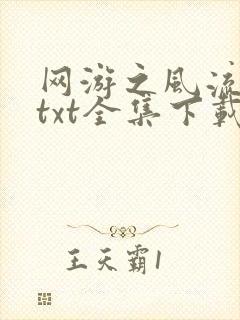 网游之风流
txt全集下载
王天霸1